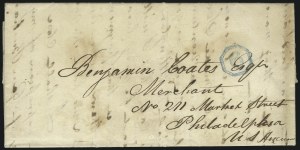 Benjamin Coates Esqr
Merchant
No. 211 Market Street
Philadelphia